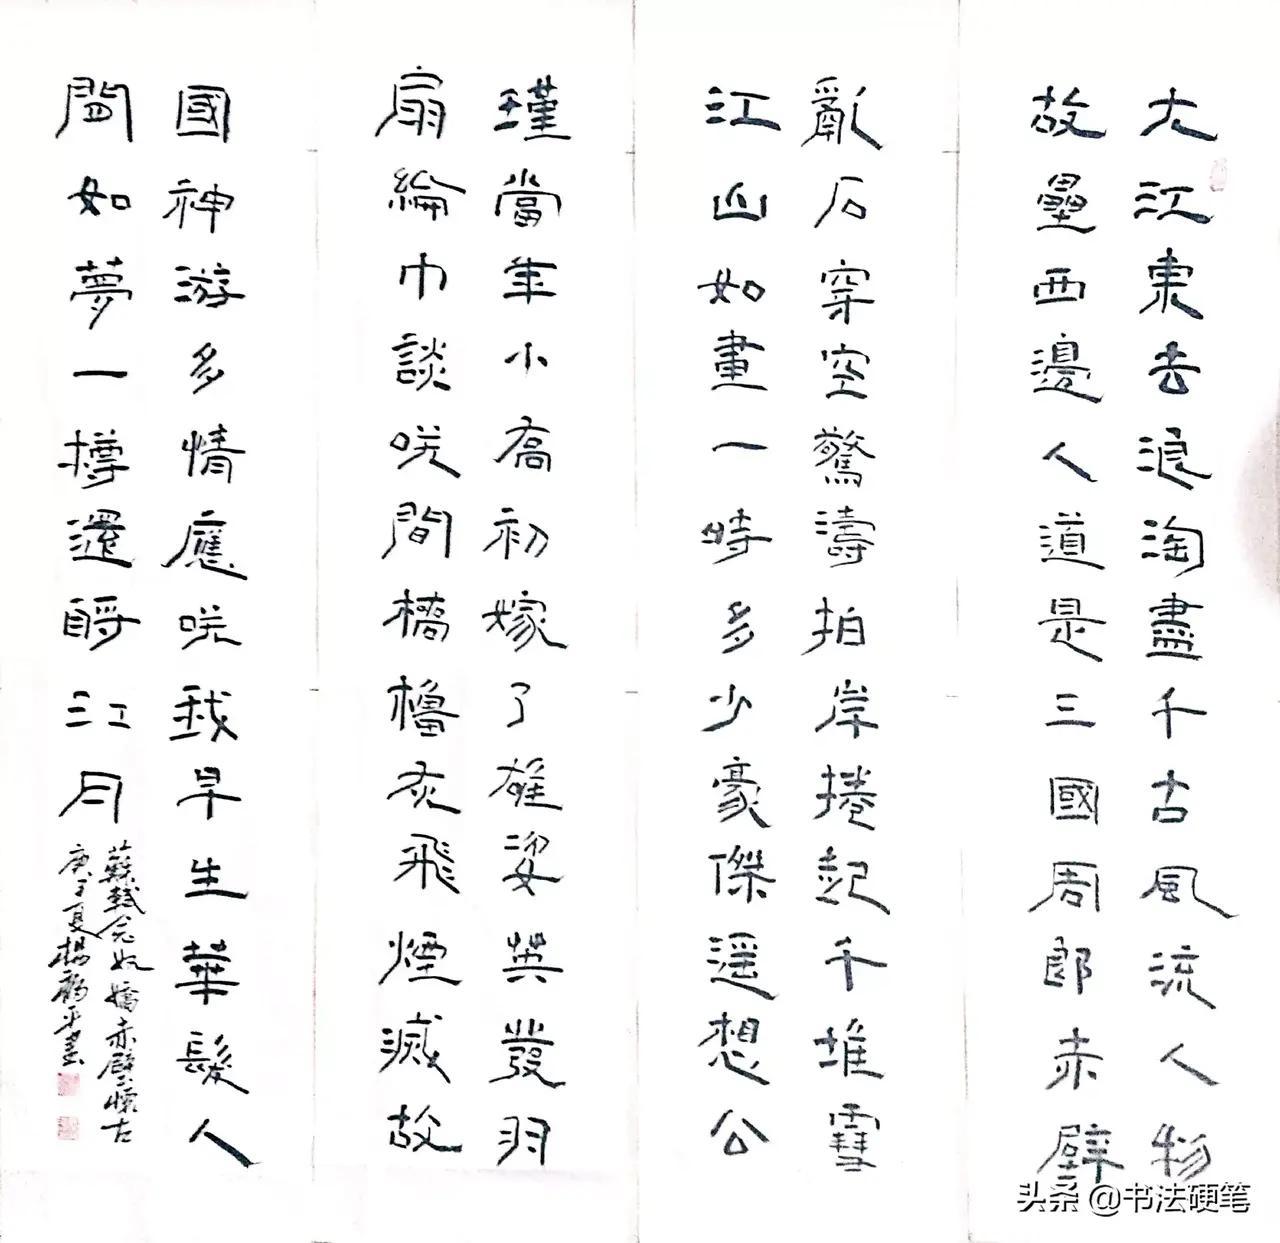 大江東去浪淘盡千古風流人物
故壘西邊人道是三國周郎赤壁
亂石穿空驚濤拍岸捲起千堆雪
江山如畫一時多少豪傑遥想公
瑾當年小喬初嫁了雄姿英發羽
扇綸巾談咲間檣櫓灰飛煙滅故
國神游多情應咲我早生華髮人
間如夢一樽還酹江月
蘇軾念奴嬌赤壁懷古
庚子夏楊平書
头条 @书法硬笔